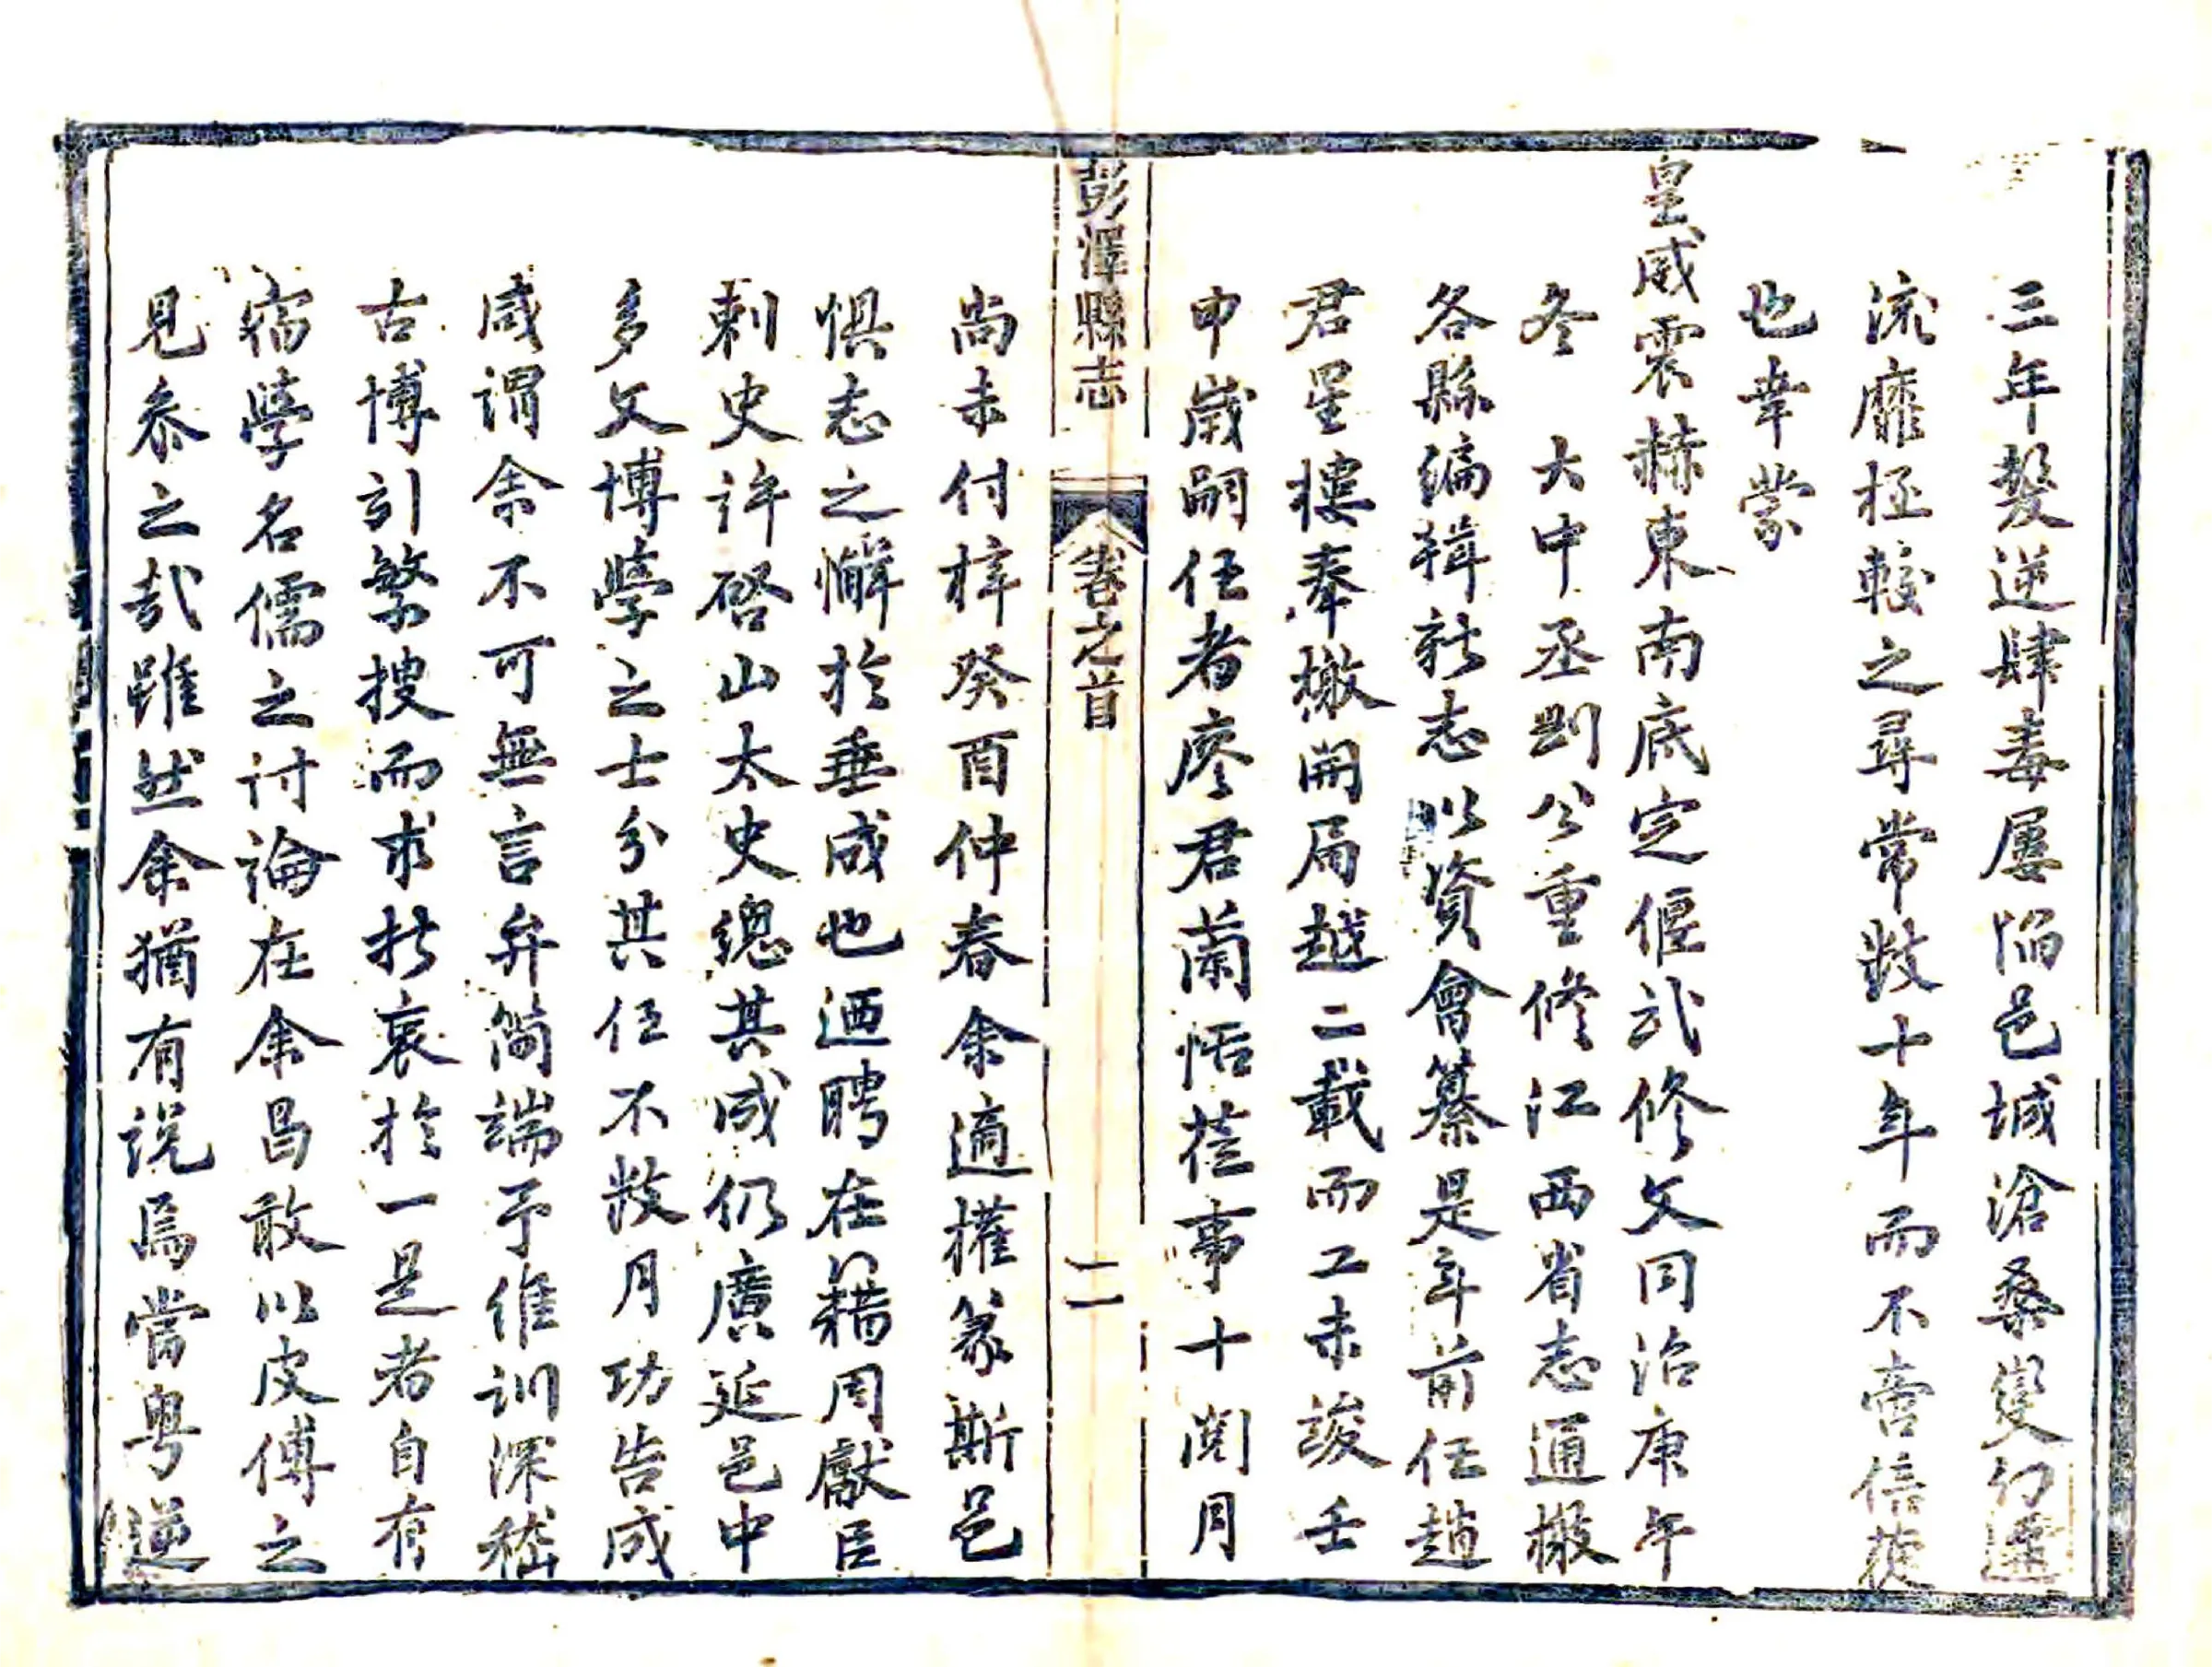 三年髮逆肆毒屢陷邑城滄桑變幻遷
流靡極較之尋常數十年而不啻倍蓰
也幸蒙
皇威震赫東南底定偃武修文同治庚午
冬　大中丞劉公重修江西省志通檄
各縣編輯新志以資會纂是年前任趙
君星樓奉檄開局越二載而工未竣壬
申歲嗣任者廖君蘭恬蒞事十閱月
彭澤縣志
卷之首
二
尚未付梓癸酉仲春余適攝篆斯邑
懼志之懈於垂成也迺聘在籍周獻臣
刺史許啓山太史總其成仍廣延邑中
多文博學之士分其任不數月功告成
咸謂余不可無言弁簡端予維訓深嵇
古博引繁搜而求折衷於一是者自有
宿學名儒之討論在余曷敢以皮傅之
見叅之哉雖然余猶有說焉當粵逆